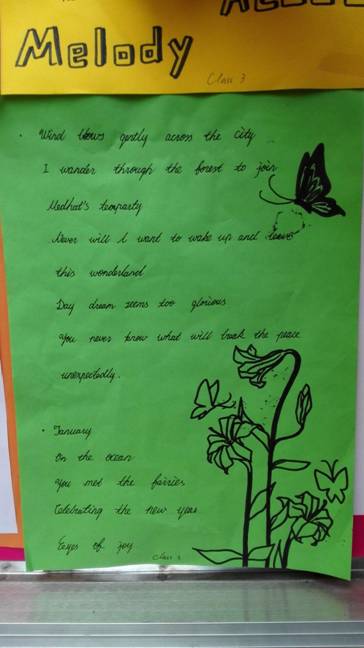 Melody
Class 3
. Wind blows gently across the city
I wander through the forest to join
Madhat's teaparty
Never will I want to wake up and leave
this wonderland
Day dream seems too glorious
You never know what will break the peace
unexpectedly.
. January
On the ocean
You met the fairies
Celebrating the new year.
Eeyes of joy
Class 3